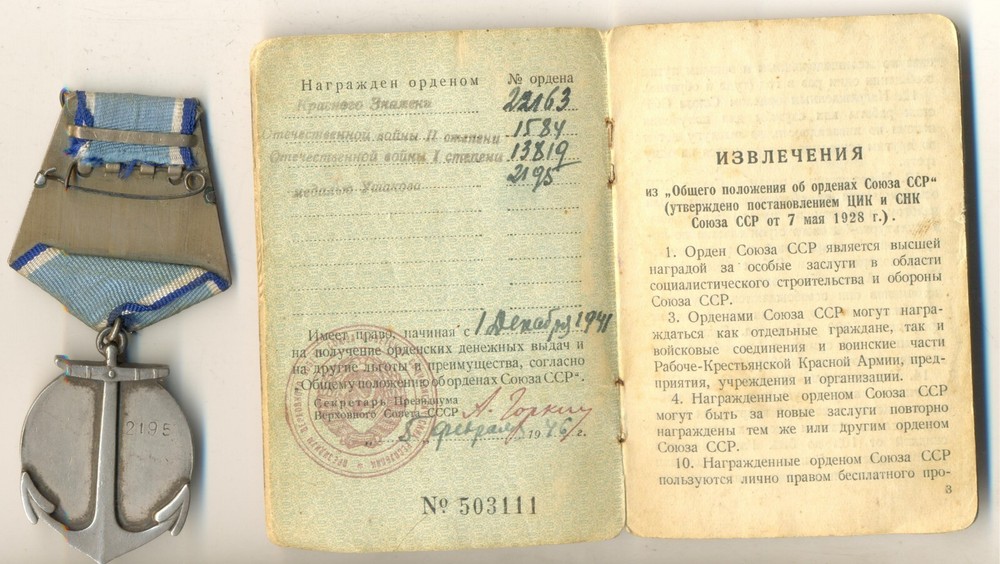 2195
Награжден орденом № ордена
Красного Знамени 22163
Отечественной войны II степени 1584
Отечественной войны I степени 13819
медалью Ушакова 2195
Имеет право, начиная с 1 Декабря 1941
на получение орденских денежных выдач и
на другие льготы и преимущества, согласно
„Общему положению об орденах Союза ССР“.
Секретарь Президиума
Верховного Совета СССР А. Горкин
„5“ февраля 1946 г.
№ 503111
ИЗВЛЕЧЕНИЯ
из „Общего положения об орденах Союза ССР“
(утверждено постановлением ЦИК и СНК
Союза ССР от 7 мая 1928 г.).
1. Орден Союза ССР является высшей
наградой за особые заслуги в области
социалистического строительства и обороны
Союза ССР.
3. Орденами Союза ССР могут награ-
ждаться как отдельные граждане, так и
войсковые соединения и воинские части
Рабоче-Крестьянской Красной Армии, пред-
приятия, учреждения и организации.
4. Награжденные орденом Союза ССР
могут быть за новые заслуги повторно
награждены тем же или другим орденом
Союза ССР.
10. Награжденные орденом Союза ССР
пользуются лично правом бесплатного про-
3